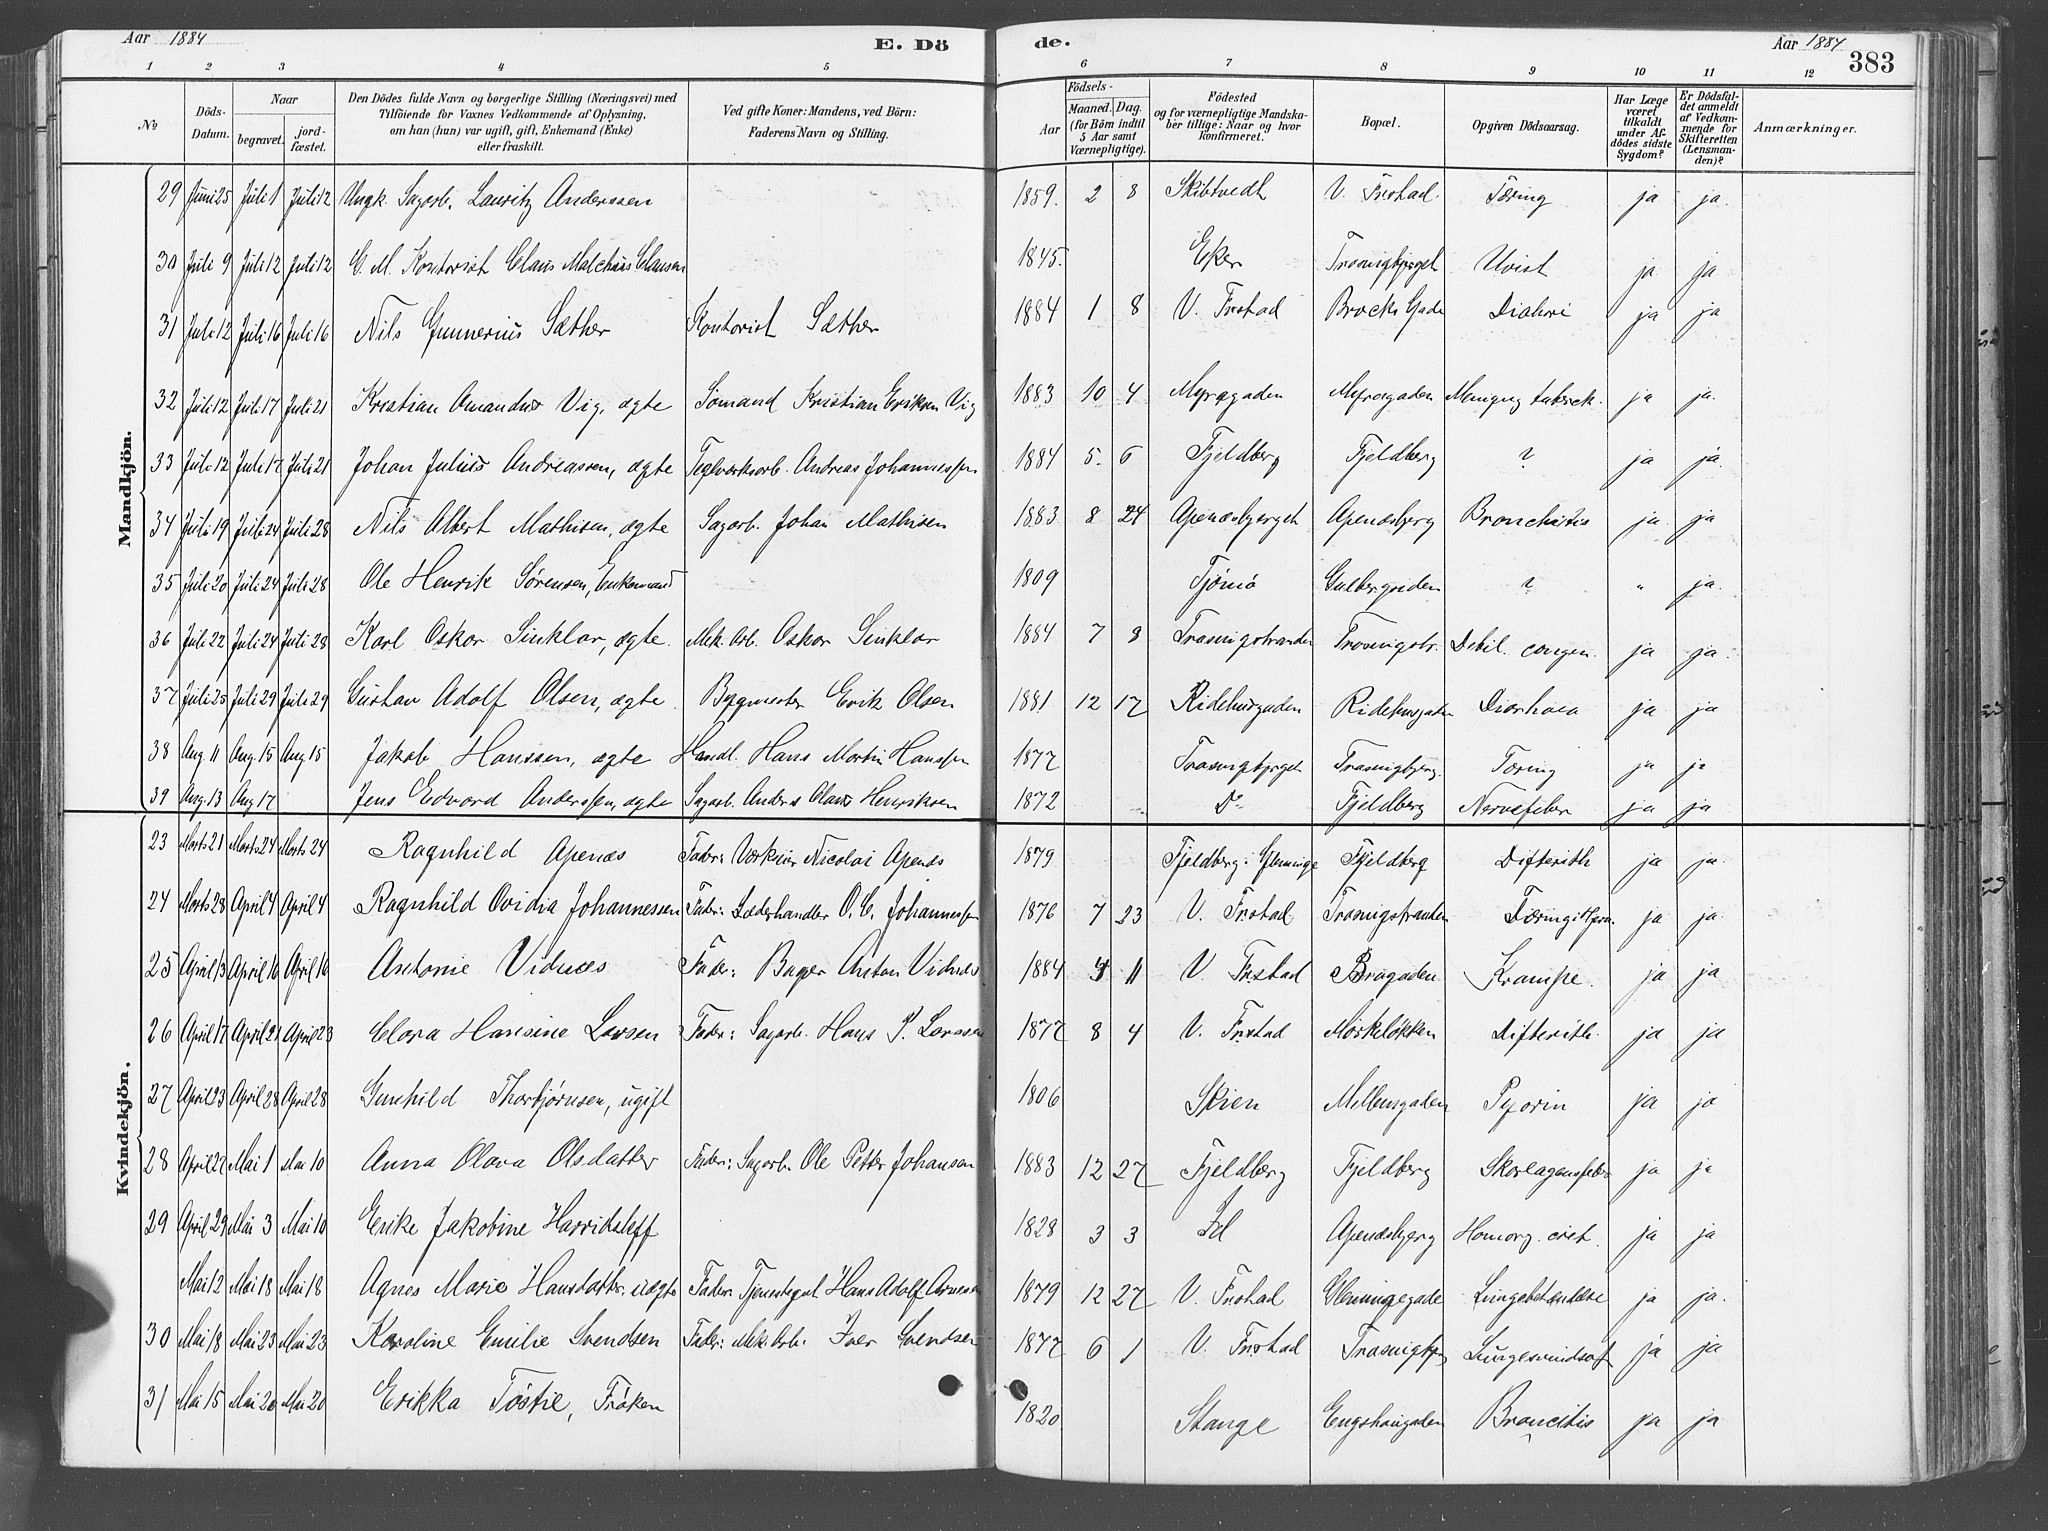 Aar 1884 E. Dö de. Aar 1884 383
1 2 3 4 5 6 7 8 9 10 11 12
№ Döds-Datum. Naar begravet. jordfæstet. Den Dödes fulde Navn og borgerlige Stilling (Næringsvei) med Tilföiende for Vaxnes Vedkommende af Oplysning, om han (hun) var ugift, gift, Enkemand (Enke) eller fraskilt. Ved gifte Koner: Mandens, ved Börn: Faderens Navn og Stilling. Födsels- Aar Maaned. Dag. (for Börn indtil 5 Aar samt Værnepligtige). Födested og for værnepligtige Mandskaber tillige: Naar og hvor konfirmeret. Bopæl. Opgiven Dödsaarsag. Har Læge været tilkaldt under Afdödes sidste Sygdom? Er Dödsfaldet anmeldt af Vedkommende for Skifteretten (Lensmanden)? Anmærkninger.
Mandkjön.
29 Juni 25 Juli 1 Juli 12 Ungk. Sagarb. Lauritz Anderssen 1859. 2 8 Skibtvedt V. Frstad. Tæring ja ja.
30 Juli 9 Juli 12 Juli 12 G. M. Kontorist Claus Malchius Clausen 1845. Eker Trosvigbjerget Uvist ja ja
31 Juli 12 Juli 16 Juli 16 Nils Gunnerius Sæther Kontorist Sæther 1884 1 8 V. Frstad Brocks Gade ja ja
32 Juli 12 Juli 17 Juli 21 Kristian Amandus Vig, ægte Sömand Kristian Eriksen Vig 1883 10 4 Myragaden Myragaden ja ja.
33 Juli 12 Juli 17 Juli 21 Johan Julius Andreassen, ægte Teglværksarb. Andreas Johannessen 1884 5. 6 Fjeldberg Fjeldberg ? ja ja.
34 Juli 19 Juli 24 Juli 28 Nils Albert Mathisen, ægte Sagarb. Johan Mathisen 1883 8 24 Apenæsbjerget Apenæsbjerg Bronchitis ja. ja
35 Juli 20 Juli 24 Juli 28 Ole Henrik Sørensen, Enkemand 1809 Tjømø ? " ja.
36 Juli 22 Juli 24 Juli 28 Karl Oskar Sinklar, ægte. Mek. Arb. Oskar Sinklar 1884 7 8 Trosvigstranden Trosvigstr. Debil. congen. ja ja.
37 Juli 25 Juli 29 Juli 29 Gustav Adolf Olsen, ægte Bygmester Erik Olsen 1881 12 17 Ridehusgaden Ridehusgaden Diarhoea ja ja
38 Aug 11 Aug. 15 Aug 15 Jakob Hanssen, ægte Handl. Hans Martin Hanssen 1877 Trosvigbjerget Trosvigbjerg. Tæring ja ja
39 Aug. 13 Aug 17 Jens Edvard Anderssen, ægte Sagarb. Anders Olaus Henriksen 1872 Do Fjeldberg Nervefeber ja ja
Kvindekjön.
23 Marts 21 Marts 24 Marts 24 Ragnhild Apenæs Fader: Værkeier Nicolai Apenæs 1879 Fjeldberg i Glemminge Fjeldberg Difterith ja ja.
24 Marts 28 April 4 April 4 Ragnhild Ovidia Johannessen Fader: Læderhandler O. C. Johannessen 1876 7 23 V. Frstad. Trosvigstranden ja ja.
25 April 13 April 16 April 16 Antonie Vidnæs Fader: Bager Anton Vidnæs 1884 4 11 V. Frstad Brogaden Krampe. ja ja
26 April 17 April 21 April 23 Clara Hansine Larsen Fader: Sagarb. Hans P. Larssen 1877 8 4 V. Frstad Mørkeløkken Difterith. ja ja
27 April 23 April 28 April 28 Gunhild Thorbjørnsen, ugift 1806 Skien Mellemgaden ja ja
28 April 27 Mai 1 Mai 10 Anna Olava Olsdatter Fader: Sagarb. Ole Petter Johansen 1883 12 27 Fjeldberg Fjeldberg Skarlagensfeber ja ja
29 April 29 Mai 3 Mai 10 Jakobine 1828 3 3 Id Apenæsbjerg ja ja
Mai 12 Mai 18 Mai 18 Agnes Marie Hansdatter, uægte Fader: Hans Adolf Arnesen 1879 12 27 V. Frstad Glemmingegade Lungebetændelse ja ja.
30 Mai 18 Mai 23 Mai 23 Karoline Emilie Svendsen Fader: Mek. Arb. Iver Svendsen 1877 6 1 V. Frstad Trosvigbjerg Lungesvindsot ja ja
31 Mai 15 Mai 20 Mai 20 Erikka Töstie, Frøken 1820 Stange Enghaugaden Broncitis ja ja